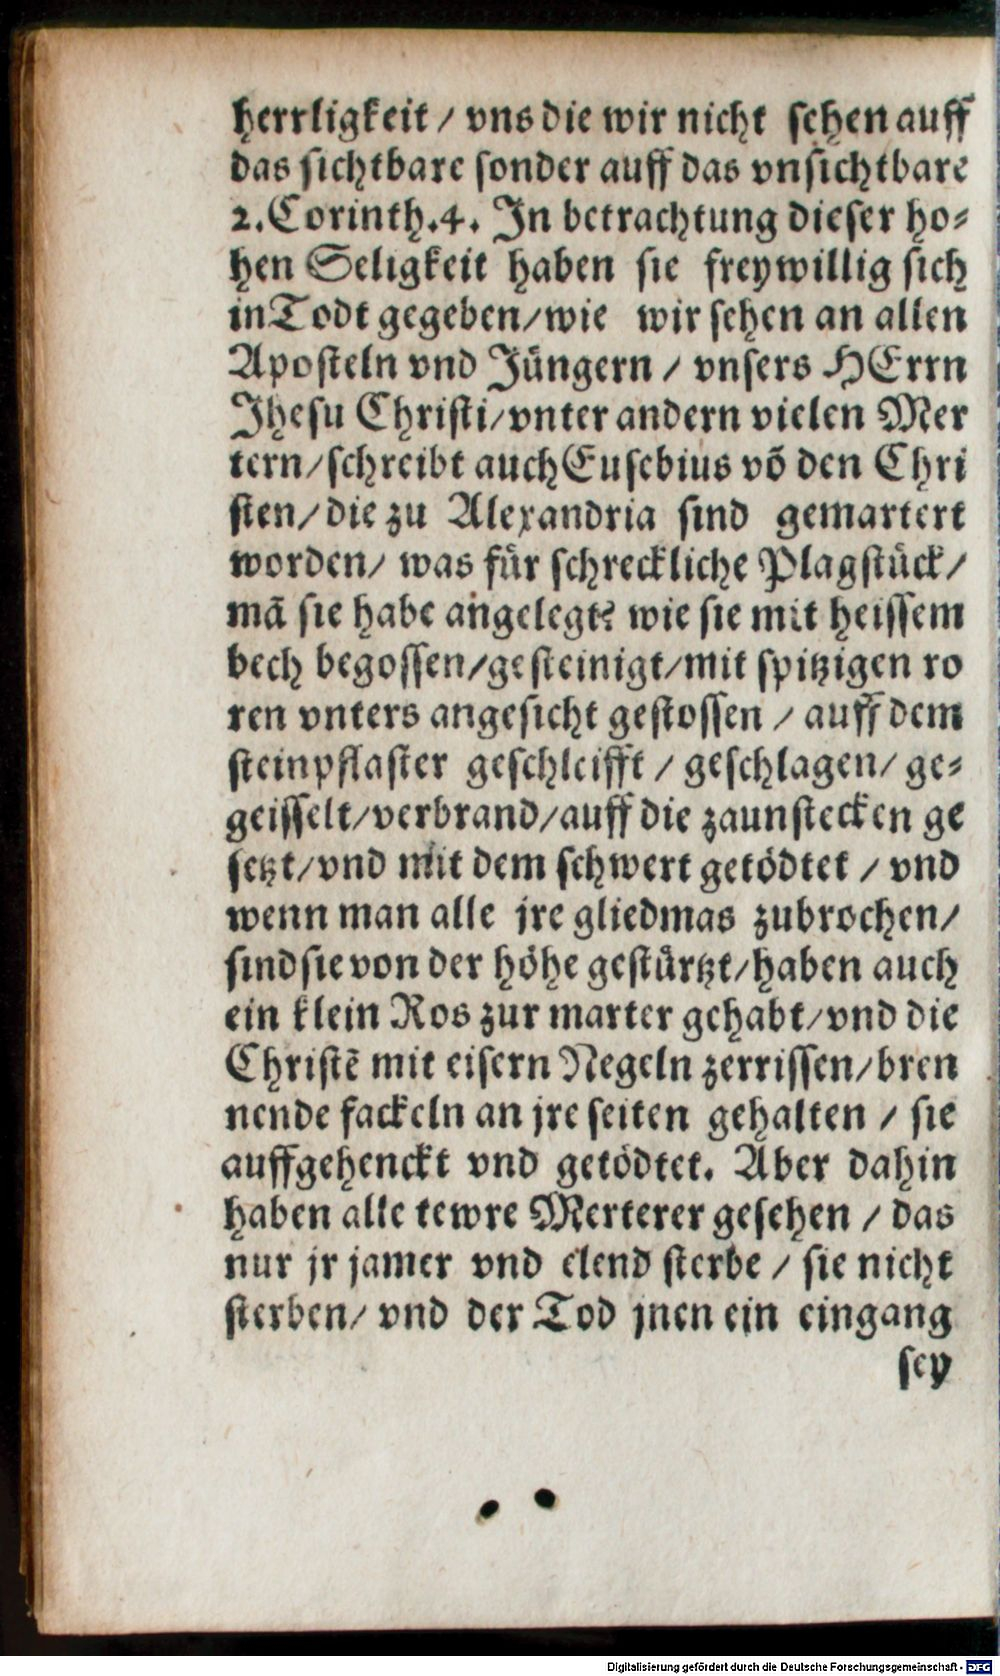 herrligkeit / vns die wir nicht sehen auff
das sichtbare sonder auff das vnsichtbare
2. Corinth. 4. In betrachtung dieser ho-
hen Seligkeit haben sie freywillig sich
in Todt gegeben/ wie wir sehen an allen
Aposteln vnd Jüngern / vnsers HErrn
Jhesu Christi/ vnter andern vielen Mer
tern/ schreibt auch Eusebius võ den Chri
sten/ die zu Alexandria sind gemartert
worden/ was für schreckliche Plagstück/
mã sie habe angelegt? wie sie mit heissem
bech begossen/ gesteinigt/ mit spitzigen ro
ren vnters angesicht gestossen / auff dem
steinpflaster geschleifft / geschlagen/ ge-
geisselt/ verbrand/ auff die zaunstecken ge
setzt/ vnd mit dem schwert getödtet / vnd
wenn man alle jre gliedmas zubrochen/
sind sie von der höhe gestürtzt/ haben auch
ein klein Ros zur marter gehabt/ vnd die
Christẽ mit eisern Negeln zerrissen/ bren
nende fackeln an jre seiten gehalten / sie
auffgehenckt vnd getödtet. Aber dahin
haben alle tewre Merterer gesehen / das
nur jr jamer vnd elend sterbe / sie nicht
sterben/ vnd der Tod jnen ein eingang
sey
Digitalisierung gefördert durch die Deutsche Forschungsgemeinschaft - DFG